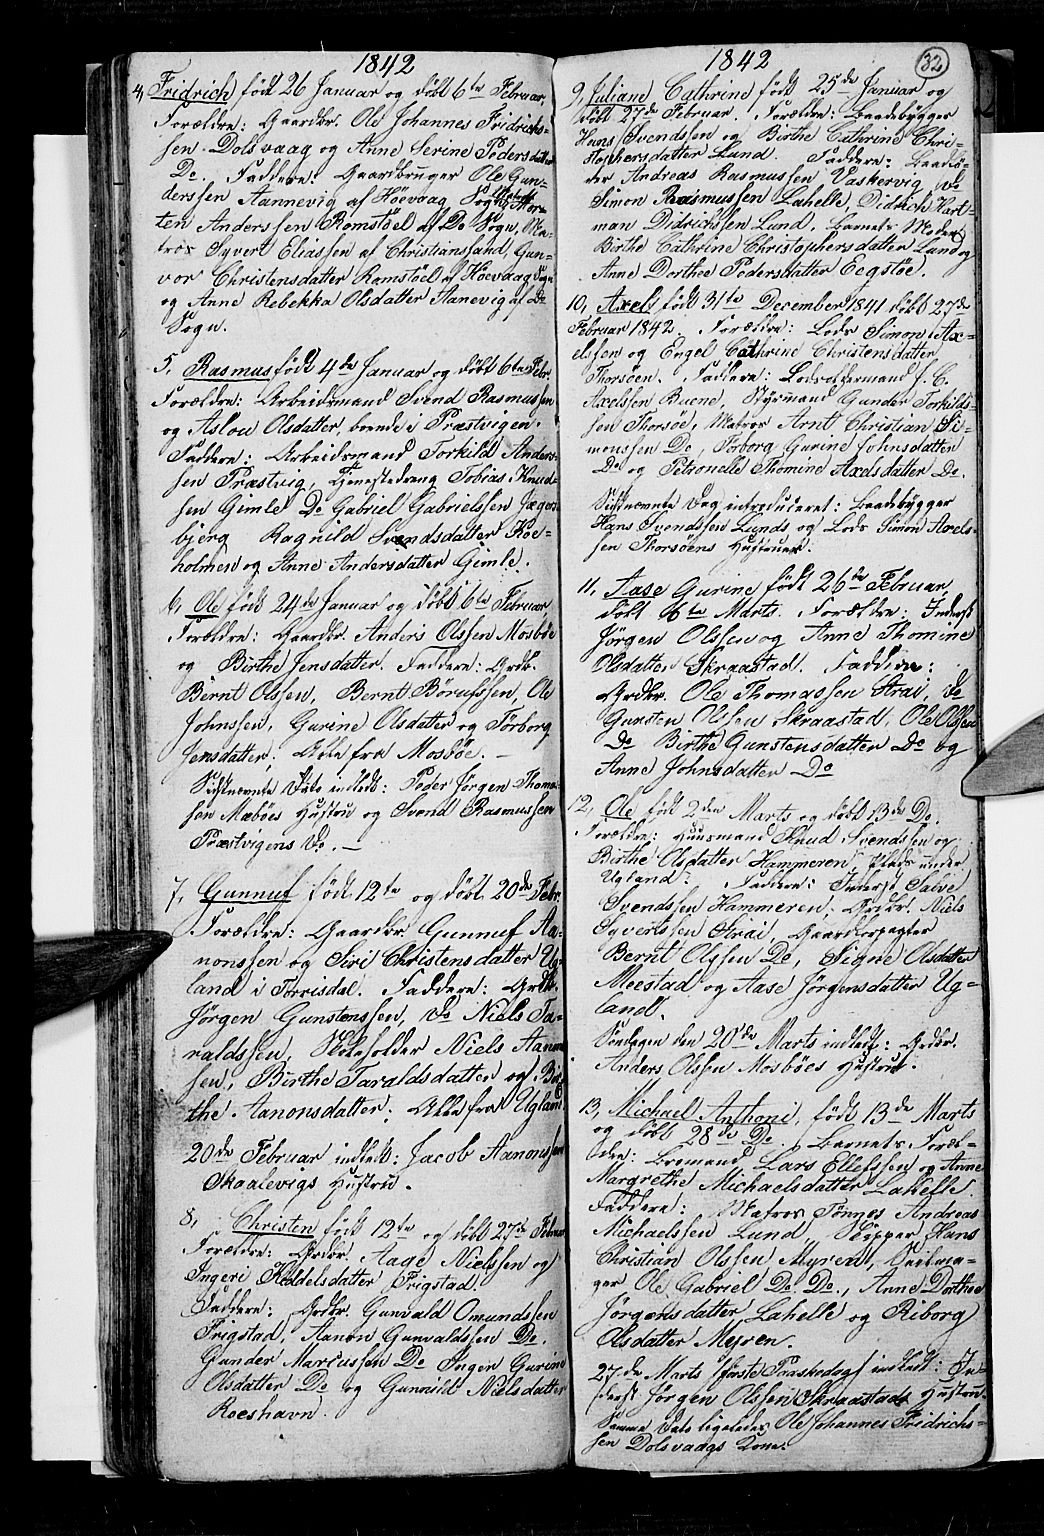 1842
4, Fridrich født 26 Januar og døbt 6te Februar,
Forældre: Gaardbr. Ole Johannes Fridrichs-
sen Dolsvaag og Anne Serine Pedersdatter
Do. Faddere: Gaardbruger Ole Gun-
derssen Aannevig af Höevaag Sogn, Mor-
ten Anderssen Romstöel af Do Sogn, Ma-
tros Syvert Eliassen af Christianssand, Gun-
vor Christensdatter Ramstöel af Höevaag Sogn
og Anne Rebekka Olsdatter Aanevig af Do
Sogn.
5, Rasmus født 4de Januar og døbt 6te Febr.
Forældre: Arbeidsmand Svend Rasmussen
og Aslou Olsdatter, boende i Præstvigen.
Faddere: Arbeidsmand Torkild Anders-
sen Præstvig, Tjenestedreng Tobias Knud-
sen Gimle Do Gabriel Gabrielssen Jægers-
bjerg Ragnild Svendsdatter Koe-
holmen og Anne Andersdatter Gimle.
6, Ole født 24de Januar og døbt 6te Februar,
Forældre: Gaardbr. Anders Olssen Mosböe
og Birthe Jensdatter. Faddere: Grdbr.
Bernt Olssen, Bernt Börufssen, Ole
Johnssen, Gurine Olsdatter og Törborg
Jensdatter. Alle fra Mosböe. —
Sidstnævnte Dato indledt: Peder Jørgen Thoma-
sen Mæböes Hustru og Svend Rasmussen
Præstvigens Do. —
7, Gunnuf født 12te og døbt 20de Febr.
Forældre: Gaardbr. Gunnuf Aa-
nonssen og Siri Christensdatter Ug-
land i Torrisdal. Faddere: Grdbr.
Jørgen Gunstenssen, Do Niels Ta-
raldssen, Skoleholder Niels Aanon-
sen, Birthe Taraldsdatter og Bir-
the Aanonsdatter. Alle fra Ugland.
20de Februar indledt: Jacob Aanonssen
Skaalevigs Hustru.
8, Christen født 12te og døbt 27de Februar
Forældre: Grdbr. Aage Nielssen og
Ingeri Kiddelsdatter Frigstad.
Faddere: Grdbr. Gunvald Omundssen
Frigstad, Aanon Gunvaldssen Do.
Gunder Marcussen Do Inger Gurine
Olsdatter Do og Gunnild Nielsdatter
Roeshavn.
1842
32
9, Juliane Cathrine født 25de Januar og
døbt 27de Februar. Forældre: Baadebygger
Hans Svendssen og Birthe Cathrine Chri-
stophersdatter Lund. Faddere: Baads-
der Andreas Rasmussen Vaskervig, Do
Simon Rasmussen Lahelle, Didrich Hart-
man Didrichssen Lund, Barnets Moder
Birthe Cathrine Christophersdatter Lund og
Anne Dorthee Pedersdatter Eegstöe.
10, Axel født 31te December 1841 døbt 27de
Februar 1842. Forældre: Lods Simon Ax-
elssen og Engel Cathrine Christensdatter
Thorsöen. Faddere: Lodsoldermand J. C.
Axelssen Buene, Styrmand Gunder Torkilds-
sen Thorsöe, Matros Arnt Christian Si-
monssen Do, Torborg Gurine Johnsdatter
Do og Petronelle Thomine Axelsdatter Do.
Sidstnævnte Dag introduceret: Baadebygger
Hans Svendssen Lunds og Lods Simon Axels-
sen Thorsöens Hustruer.
11, Aase Gurine født 26de Februar,
døbt 6te Marts. Forældre: Inderst
Jörgen Olssen og Anne Thomine
Olsdatter Skraastad. Faddere:
Grdbr. Ole Thomassen Strai, Do
Gunsten Olssen Skraastad, Ole Olssen
Do Birthe Gunstensdatter Do og
Anne Johnsdatter Do
12, Ole født 2den Marts og døbt 13de Do.
Forældre: Huusmand Knud Svendssen og
Birthe Olsdatter Hammeren, Plads under
Ugland. Faddere: Inderst Salve
Svendssen Hammeren, Grdbr. Niels
Syvertssen Strai, Gaardforpagter
Bernt Olssen Do, Signe Olsdatter
Meestad og Aase Jørgensdatter Ug-
land.
Søndagen den 20de Marts indledt: Grdbr.
Anders Olssen Mosböes Hustru.
13, Michael Anthoni, født 13de Marts
og døbt 28de Do. Barnets Foræl-
dre: Baemand Lars Ellefssen og Anne
Margrethe Michaelsdatter Lahelle.
Faddere: Matros Tönnes Andreas
Michaelssen Lund, Skipper Hans
Christian Olssen Myren, Seilma-
ger Ole Gabriel Do. Do., Anne Dorthee
Jörgensdatter Lahelle og Riborg
Olsdatter Myren.
27de Marts (første Paaskedag) indledt: In-
derst Jörgen Olssen Skraastads Hustru.
Samme Dato ligeledes Ole Johannes Fridrichs-
sen Dolsvaags Kone.